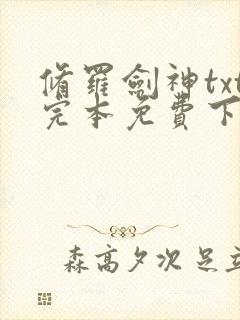 脩羅劍神txt
完本免費下
森高夕次 足立